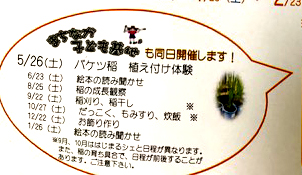 まちなか
子ども基地 も同日開催します！
5/26(土) バケツ稲 植え付け体験
6/23(土) 絵本の読み聞かせ
8/25(土) 稲の成長観察
9/22(土) 稲刈り、稲干し ※
10/27(土) だっこく、もみすり、炊飯 ※
12/22(土) お飾り作り
1/26(土) 絵本の読み聞かせ
※9月、10月ははじまるシェと日程が異なります。
また、稲の育ち具合で、日程が前後することが
あります。ご注意下さい。